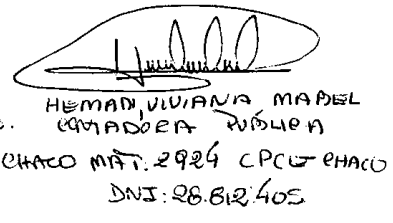 HEMAN, VIVIANA MABEL
CONTADORA PÚBLICA
CHACO MAT. 2924 CPCE CHACO
DNI: 28.612.405